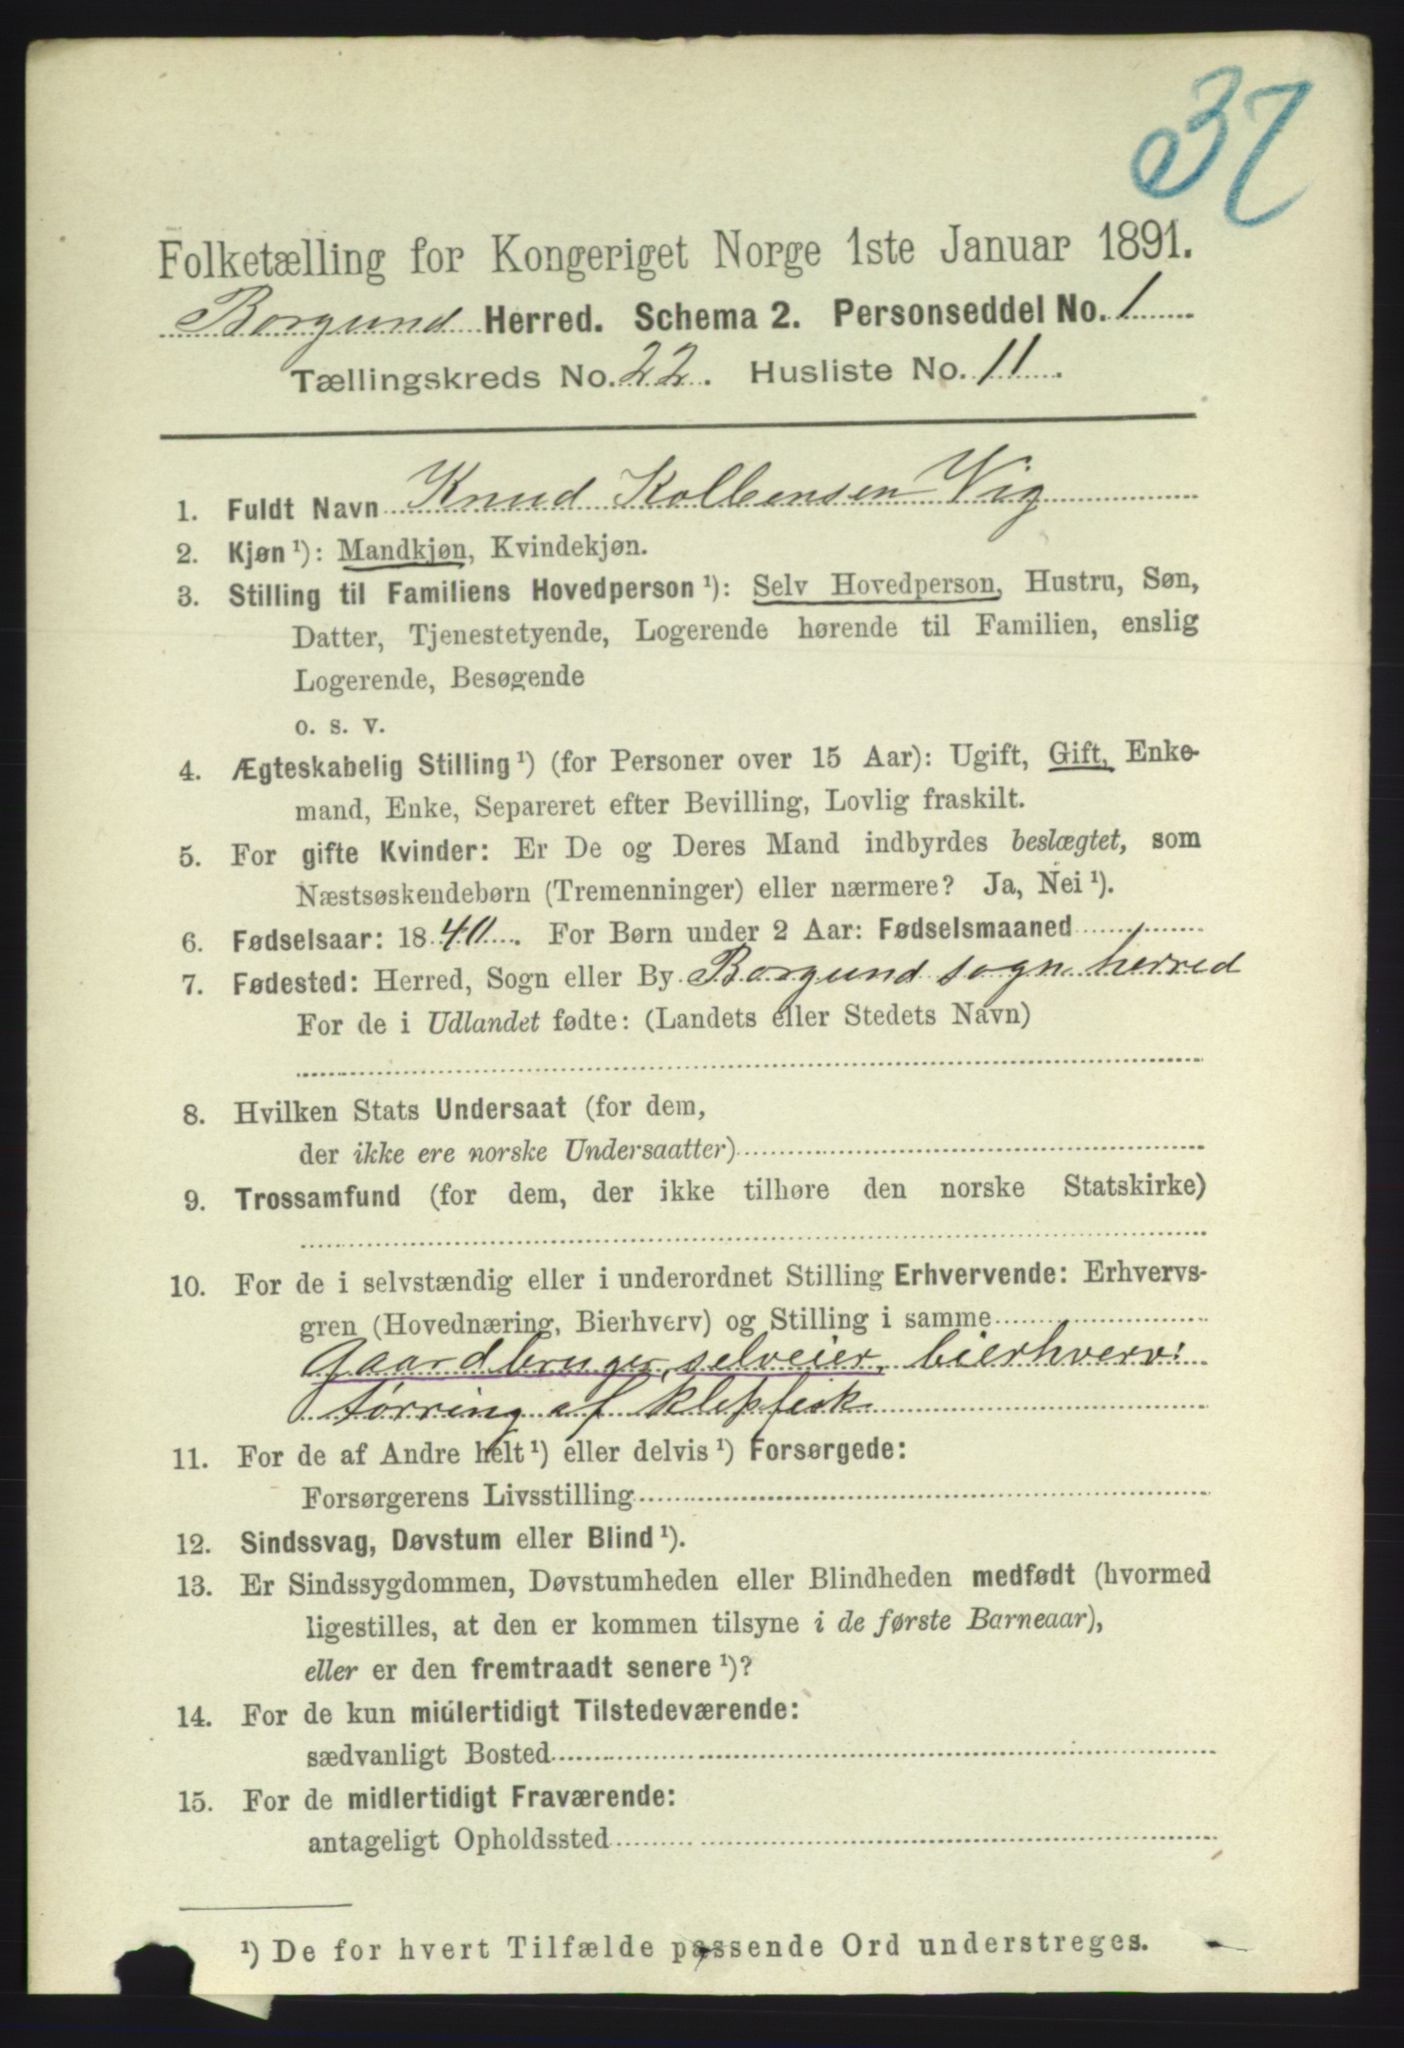 37
Folketælling for Kongeriget Norge 1ste Januar 1891.
Borgund Herred. Schema 2. Personseddel No. 1
Tællingskreds No. 22. Husliste No. 11.
1. Fuldt Navn Knud Kolbensen Vig
2. Kjøn ¹): Mandkjøn, Kvindekjøn.
3. Stilling til Familiens Hovedperson ¹): Selv Hovedperson, Hustru, Søn,
Datter, Tjenestetyende, Logerende hørende til Familien, enslig
Logerende, Besøgende
o. s. v.
4. Ægteskabelig Stilling ¹) (for Personer over 15 Aar): Ugift, Gift, Enke-
mand, Enke, Separeret efter Bevilling, Lovlig fraskilt.
5. For gifte Kvinder: Er De og Deres Mand indbyrdes beslægtet, som
Næstsøskendebørn (Tremenninger) eller nærmere? Ja, Nei ¹).
6. Fødselsaar: 1840. For Børn under 2 Aar: Fødselsmaaned
7. Fødested: Herred, Sogn eller By Borgund sogn herred
For de i Udlandet fødte: (Landets eller Stedets Navn)
8. Hvilken Stats Undersaat (for dem,
der ikke ere norske Undersaatter)
9. Trossamfund (for dem, der ikke tilhøre den norske Statskirke)
10. For de i selvstændig eller i underordnet Stilling Erhvervende: Erhvervs-
gren (Hovednæring, Bierhverv) og Stilling i samme
Gaardbruger, selveier, bierhverv:
tørring af klepfisk
11. For de af Andre helt ¹) eller delvis ¹) Forsørgede:
Forsørgerens Livsstilling
12. Sindssvag, Døvstum eller Blind ¹).
13. Er Sindssygdommen, Døvstumheden eller Blindheden medfødt (hvormed
ligestilles, at den er kommen tilsyne i de første Barneaar),
eller er den fremtraadt senere ¹)?
14. For de kun midlertidigt Tilstedeværende:
sædvanligt Bosted
15. For de midlertidigt Fraværende:
antageligt Opholdssted
¹) De for hvert Tilfælde passende Ord understreges.